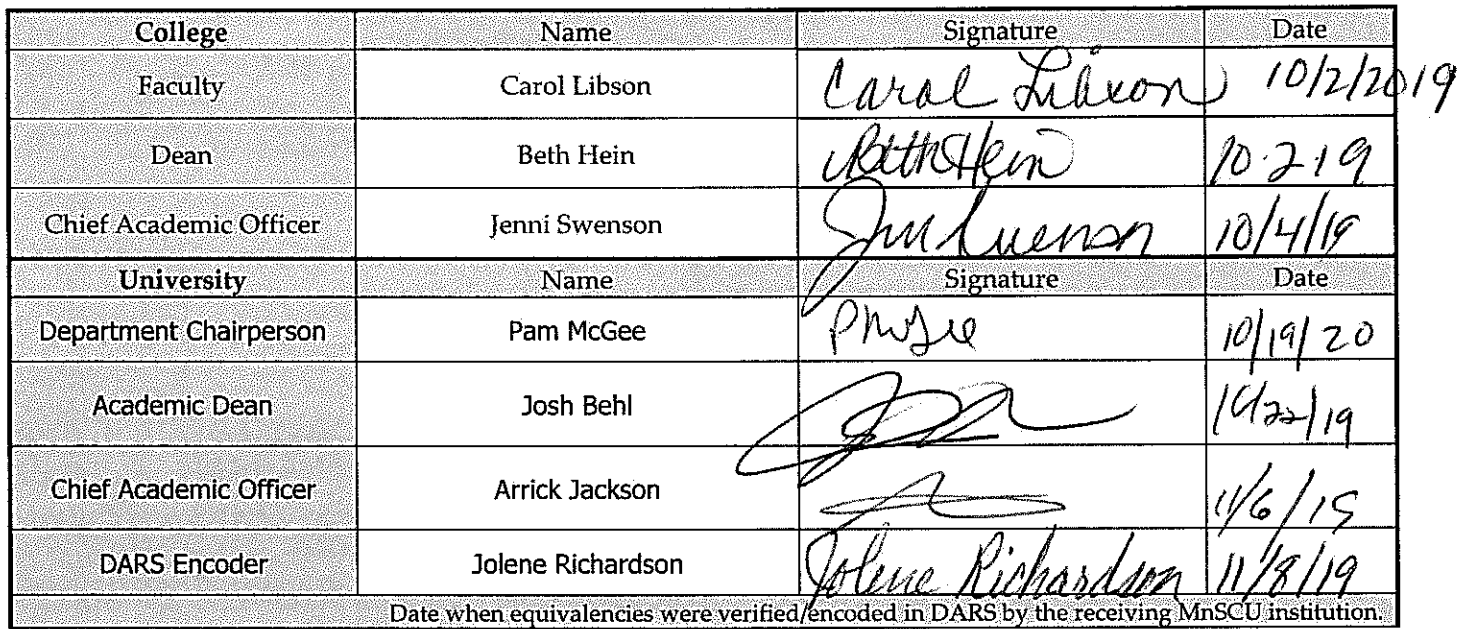 College Name Signature Date
Faculty Carol Libson Carol Libson 10/2/2019
Dean Beth Hein Beth Hein 10.2.19
Chief Academic Officer Jenni Swenson Jenni Swenson 10/4/19
University Name Signature Date
Department Chairperson Pam McGee PMcGee 10/19/20
Academic Dean Josh Behl 10/22/19
Chief Academic Officer Arrick Jackson 11/6/19
DARS Encoder Jolene Richardson Jolene Richardson 11/8/19
Date when equivalencies were verified/encoded in DARS by the receiving MnSCU institution.